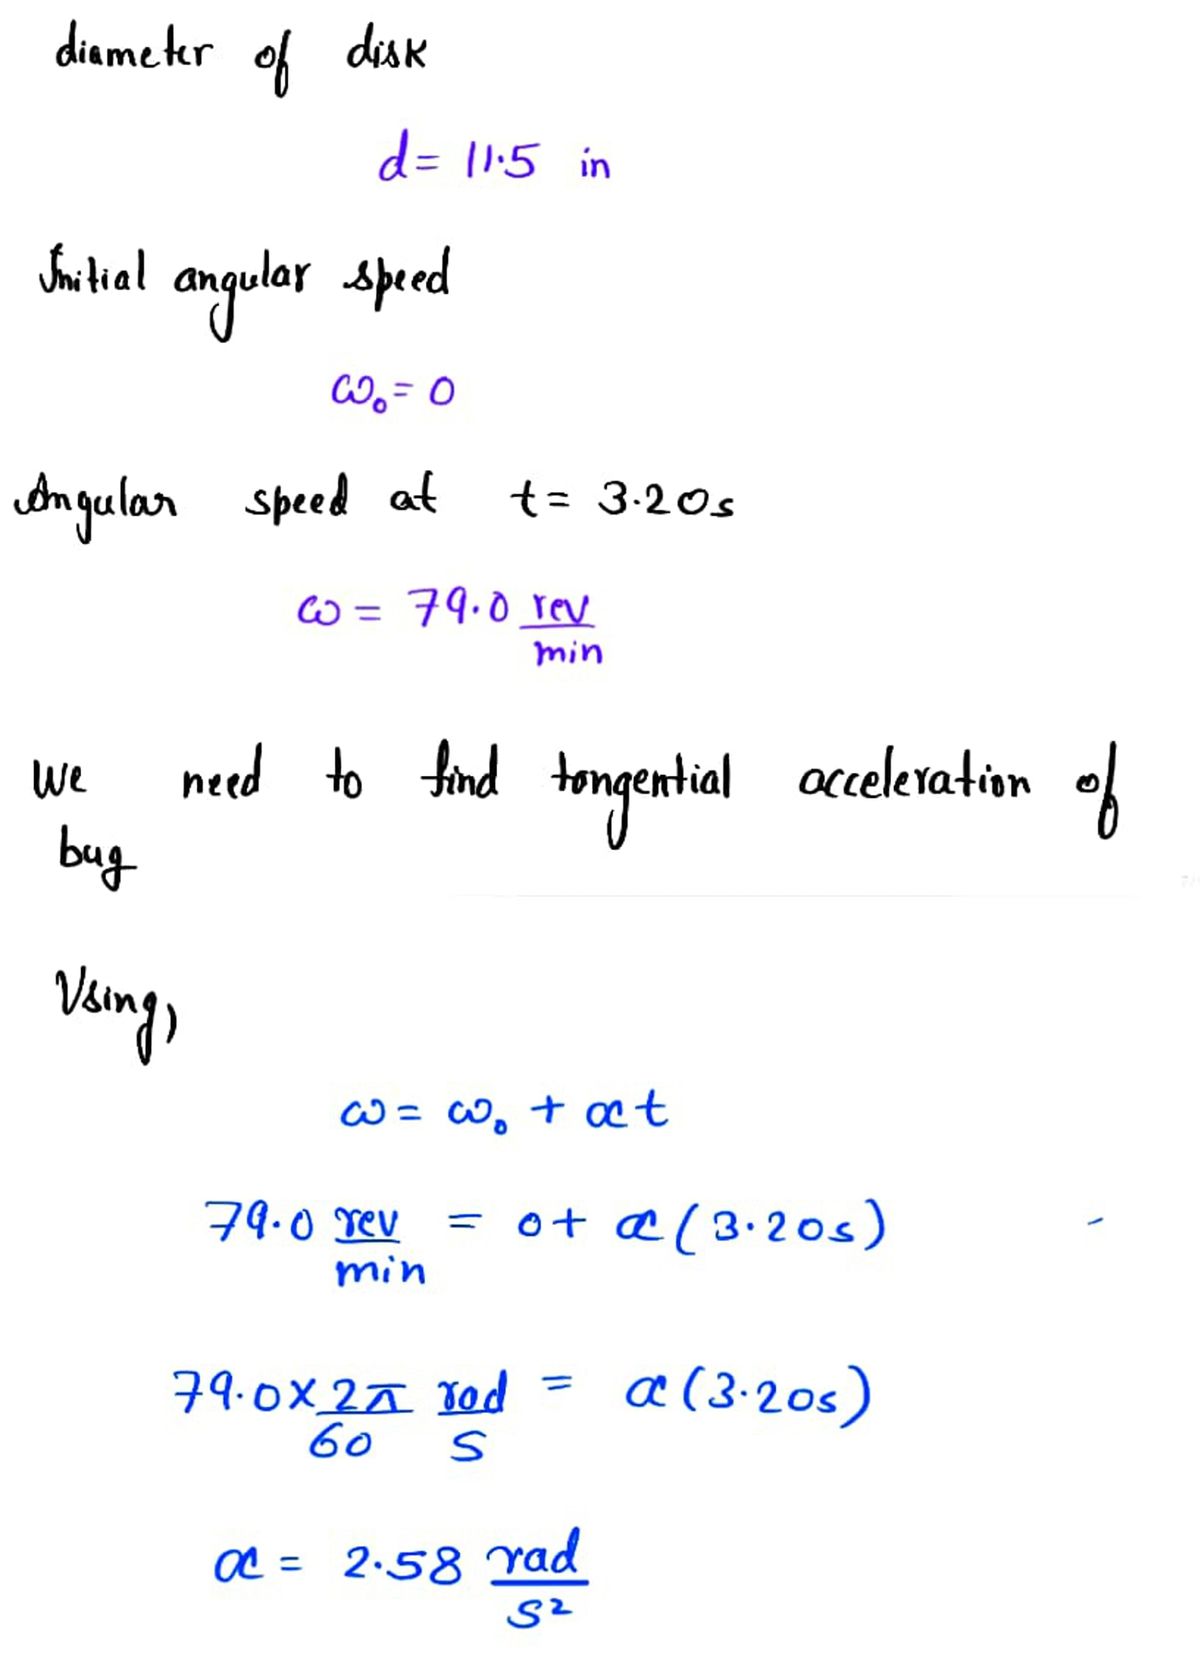 diameter of disk
d = 11.5 in
Initial angular speed
ω₀ = 0
Angular speed at t = 3.20s
ω = 79.0 rev/min
We need to find tangential acceleration of
bug
Using,
ω = ω₀ + αt
79.0 rev/min = 0 + α(3.20s)
79.0 × 2π/60 rad/s = α(3.20s)
α = 2.58 rad/s²